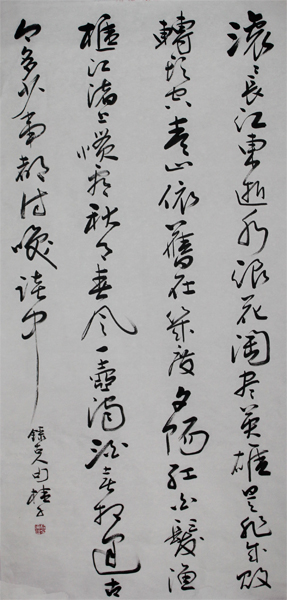 滾〻長江東逝水浪花淘盡英雄是非成敗
轉頭空青山依舊在幾度夕陽紅白髮漁
樵江渚上慣看秋月春風一壺濁酒喜相逢古
今多少事都付笑談中
錄